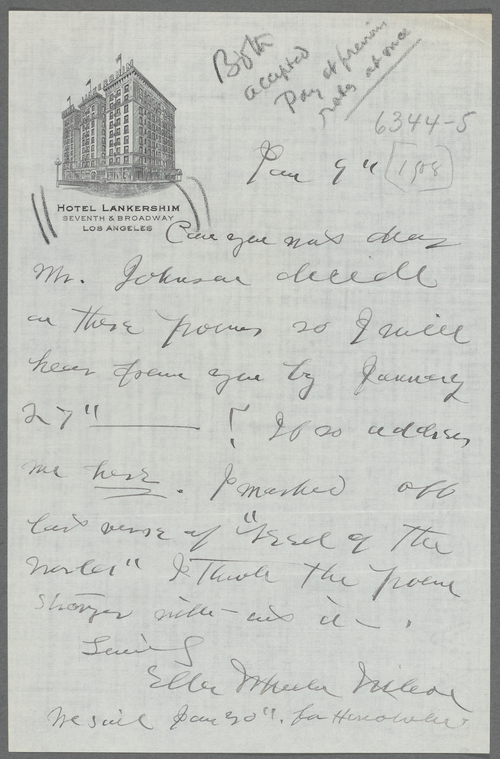 Both
accepted
Pay at previous
rates at once
6344-5
Jan 9" [1908]
HOTEL LANKERSHIM
SEVENTH & BROADWAY
LOS ANGELES
Can you not dear
Mr. Johnson decide
on these poems so I will
hear from you by January
27" ! If so address
me here. I marked off
last verse of " of the
" I think the poem
stronger with-out it.
Ella Wheeler Wilcox
We sail Jan 30". for Honolulu